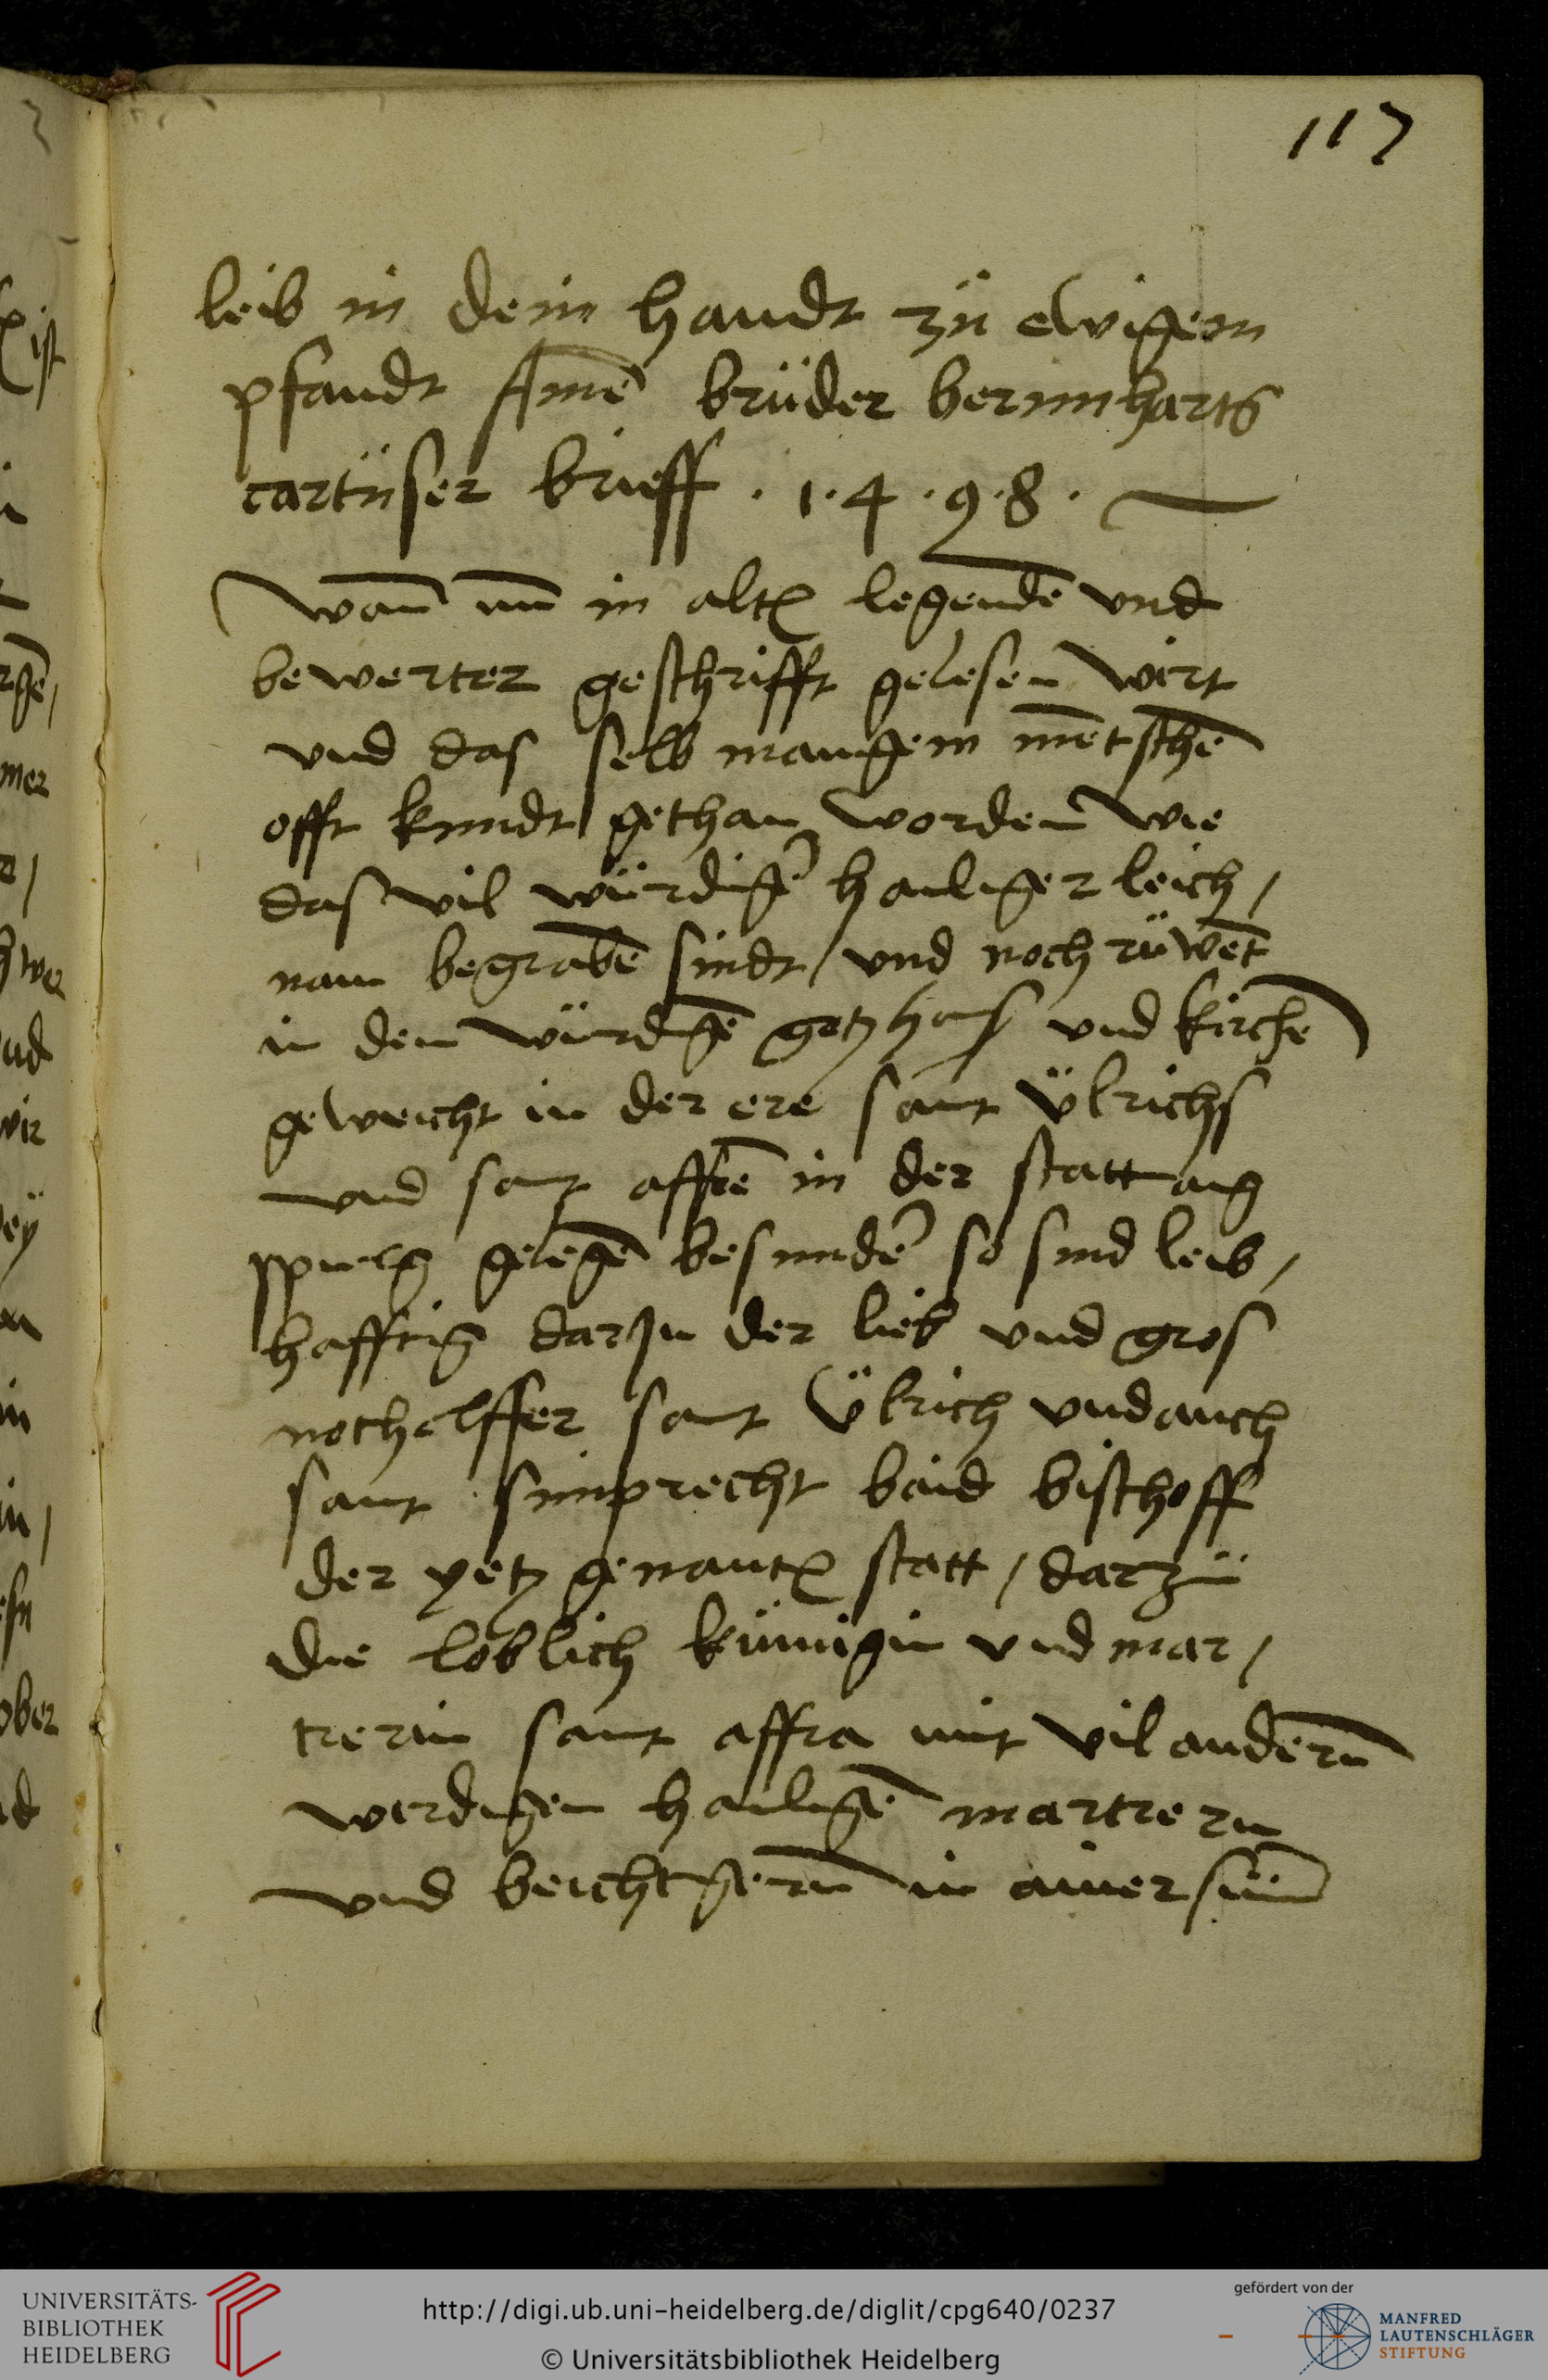 117
leib in dein handt zü ewigem
pfandt Amē brüder bernnharts
cartüser brieff . 1 . 4 . 9 . 8 .
wan̄ nun̄ in altē legendē vnd
bewerter geschrifft gelesen wirt
vnd das selb mangem mētschē
offt kundt gethan worden wie
das vil würdigē hailiger leich /
nam begrabē sindt / vnd noch rüwēt
in dem würdigē gotzhaus vnd kirchē
geweicht in der ere sant Ülrichs
vnd sant affrē in der statt aug
spurg gelegē besundē so sind leib /
hafftig darJn der lieb vnd gros
nothelffer sant Ülrich vnd auch
sant simprecht baid bischoff
der yetz genantē statt / darzü
die loblich künigin vnd mar /
trerin sant affra mit vil andern̄
werdigen hailigē martrern
vnd beichtigern̄ in ainer sum̄
UNIVERSITÄTS-
BIBLIOTHEK
HEIDELBERG
http://digi.ub.uni-heidelberg.de/diglit/cpg640/0237
© Universitätsbibliothek Heidelberg
gefördert von der
MANFRED
LAUTENSCHLÄGER
STIFTUNG